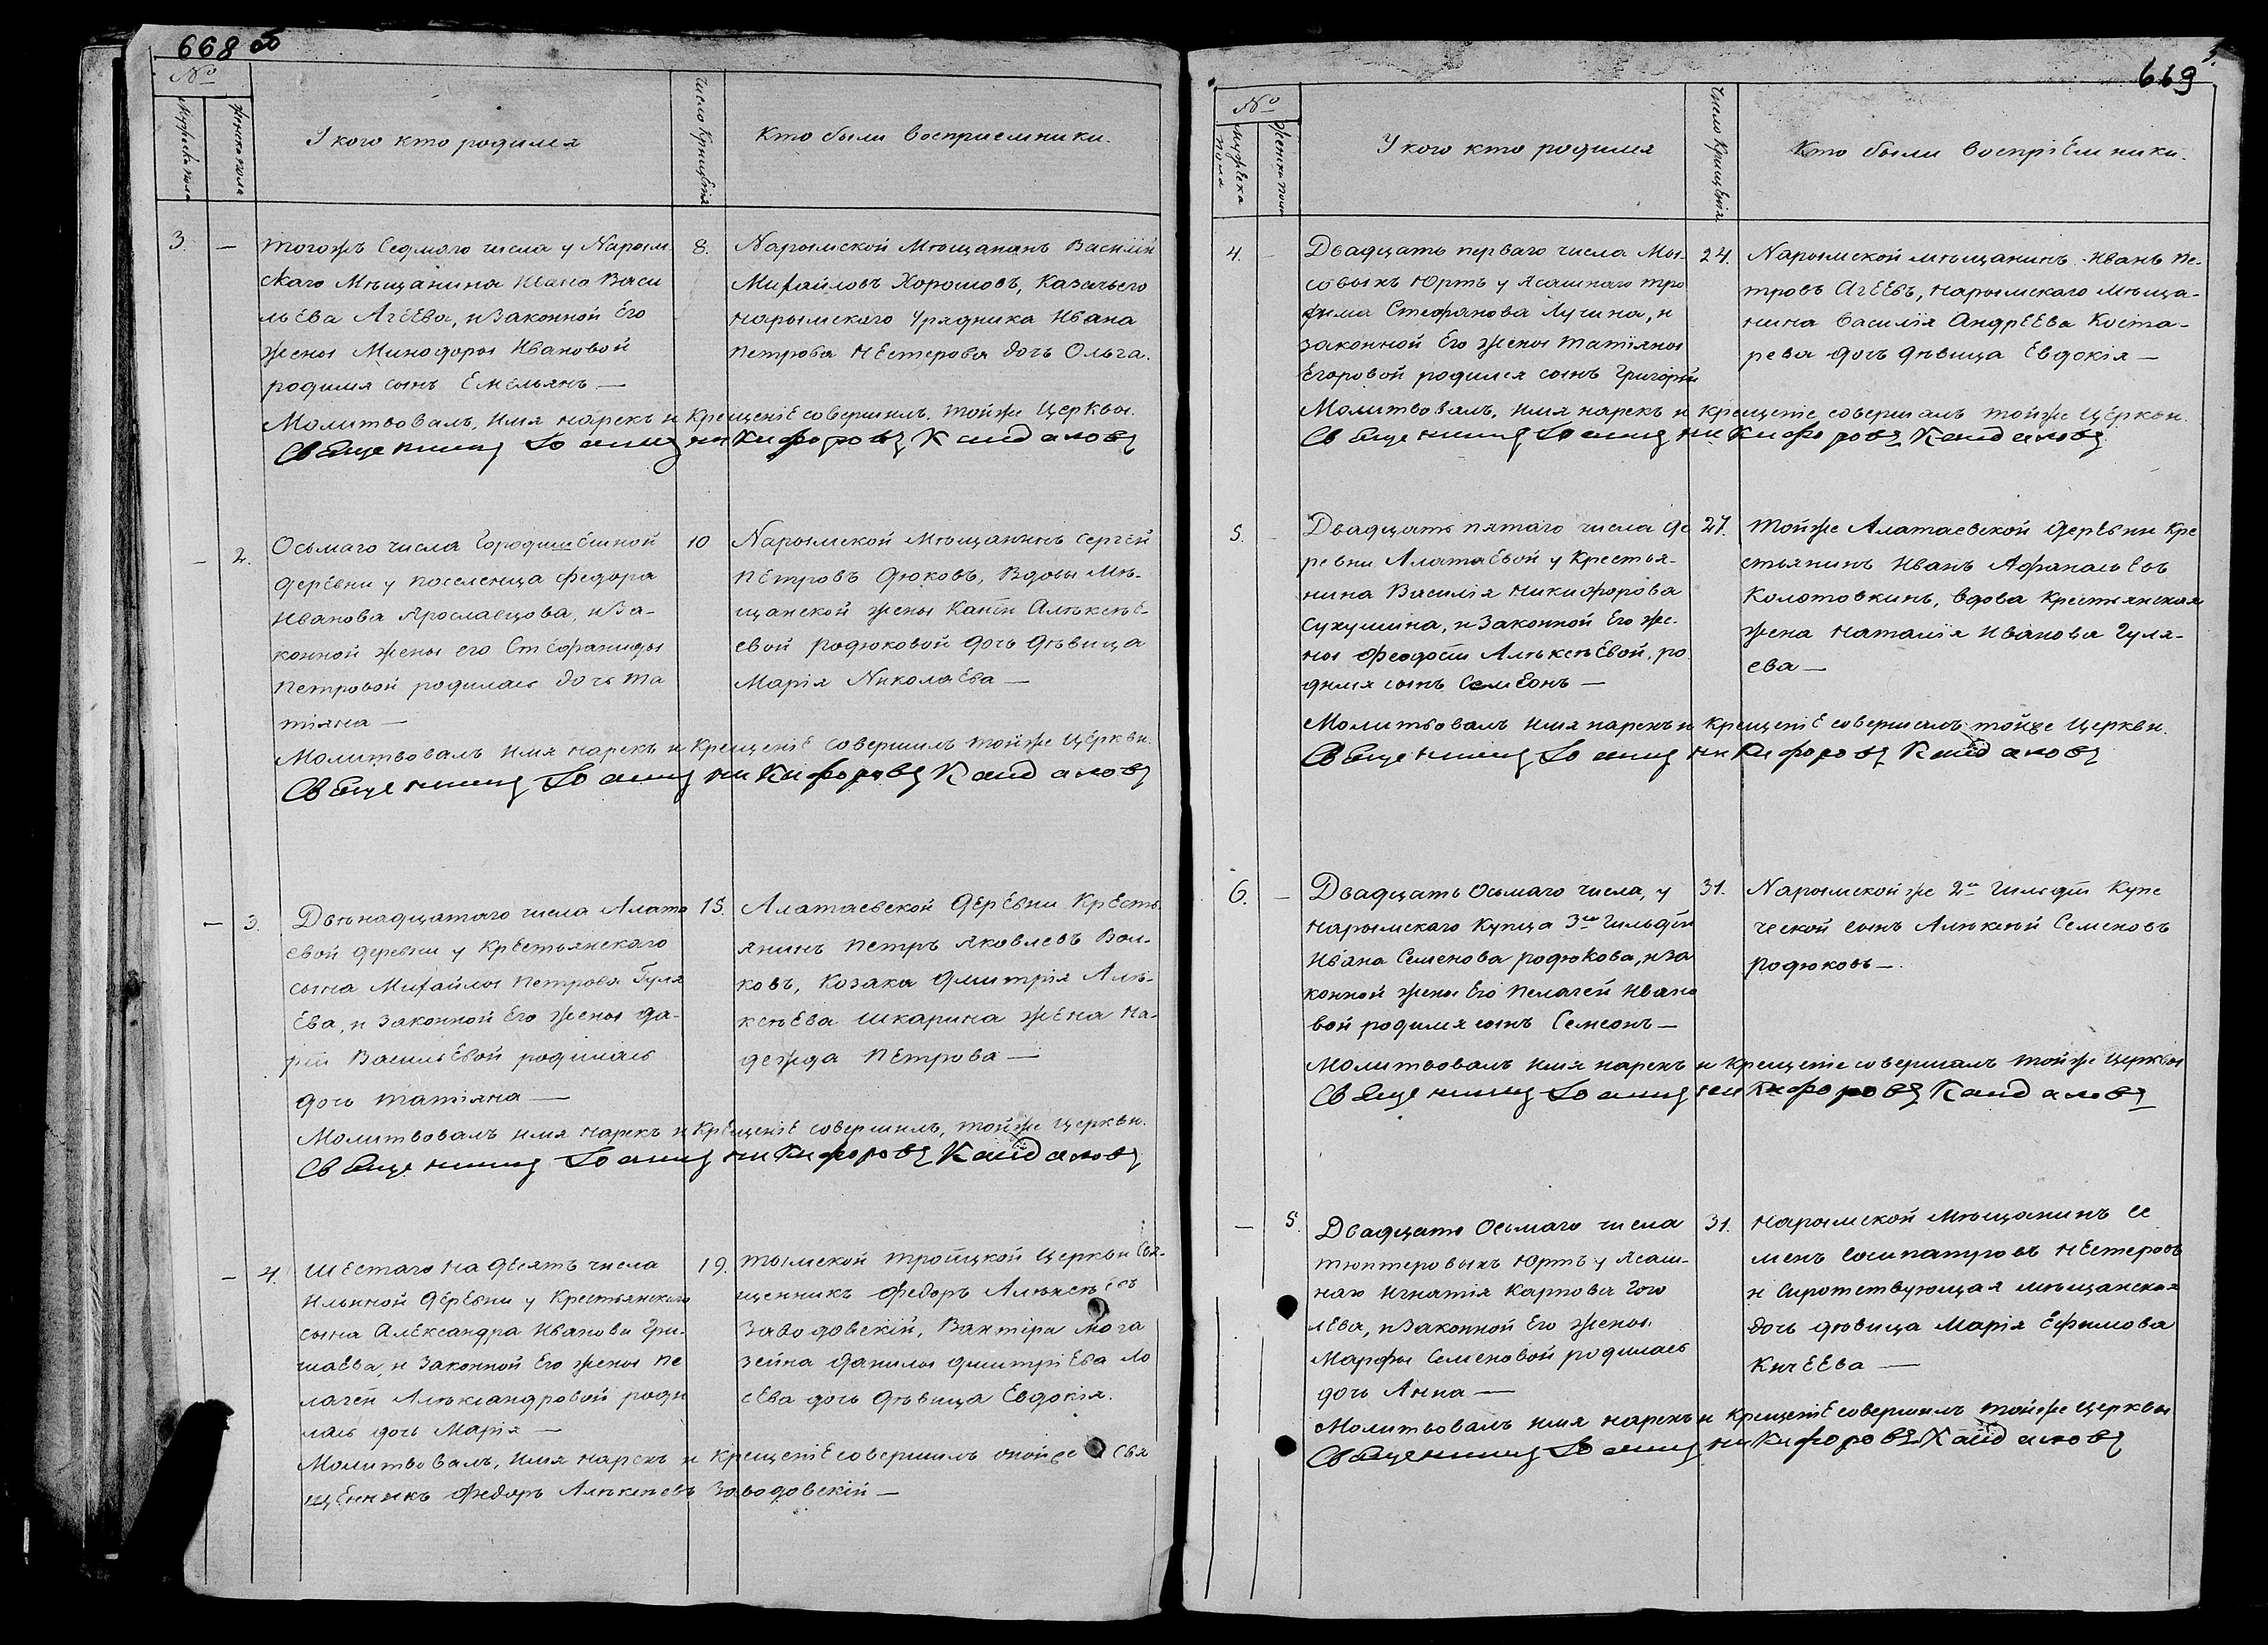 668 об
№
Мужеска пола
Женска пола
У кого кто родился
Число Крещенiя
Кто были восприемники.
3. —
тогожъ Седмого числа у Нарым
скаго Мѣщанина Ивана Васи
льЕва АгЕЕва, и Законной Его
Жены Минодоры Ивановой
родился сынъ Емельянъ —
8.
Нарымской Мѣщанинъ Василiй
Михайловъ Хорошовъ, Казачьего
нарымскаго Урядника Ивана
петрова нЕстерова дочь Ольга.
Молитвовалъ, Имя нарекъ и КрещенiЕ совершилъ. тойже Церквы.
СвЯщенникъ Iоаннъ никифоровъ Кайдаловъ
— 2.
Осьмаго числа Городищешной
дерЕвни у поселенца федора
Иванова Ярославцова, и За-
конной жены его СтЕфаниды
петровой родилась дочь та
тiяна —
10
Нарымской Мѣщанинъ СергЕй
пЕтровъ дюковъ, Вдовы Мѣ-
щанской жены АлѣксѣЕ-
евой родюковой дочь дѣвица
Марiя НиколаЕва —
Молитвовалъ имя нарекъ и КрещенiЕ совершилъ тойже ЦЕркви.
СвЯщенникъ Iоаннъ никифоровъ Кайдаловъ
— 3.
Двѣнадцатаго числа Алата
евой деревни у КрЕстьянскаго
сына Михайлы петрова Гуля
Ева, и Законной Его жены да-
рiи ВасильЕвой родилась
дочь татiяна —
15.
Алатаевской дЕрЕвни КрЕсть
янинъ петръ яковлевъ Вол-
ковъ, Козака дмитрiя Алѣ-
ксѣЕва шкарина жЕна на-
дежда пЕтрова —
Молитвовалъ имя нарекъ и КрЕщенiЕ совершилъ, тойже церкви.
СвЯщенникъ Iоаннъ никифоровъ Кайдаловъ
— 4.
шЕстаго на дЕсять числа
Ильиной дЕрЕвни у Крестьянскаго
сына АлЕксандра Иванова Гри-
шаЕва, и Законной Его жены пе
лагеи Алѣксандровой роди
лась дочь Марiя —
19.
тымской троицкой Церкви Свя-
щенникъ федоръ АлѣксѣЕвъ
Заводовскiй, Вахтiра мога
зейна данилы дмитрiЕва Ло
сЕва дочь дѣвица Евдокiя.
Молитвовалъ, Имя нарекъ и КрещенiЕ совершилъ онойже Свя
щЕнникъ федоръ Алѣксѣевъ Заводовскiй —
669
№
Мужеска пола
Женска пола
У кого кто родился
Число Крещенiя
Кто были воспрiЕмники.
4. —
Двадцать перваго числа Мы-
совыхъ Юртъ у Ясашнаго тро
фима Стефанова Лучина, и
законной Его жены татiяны
Егоровой родился сынъ Григорiй
24.
Нарымской мѣщанинъ Иванъ пе-
тровъ АгЕЕвъ, нарымскаго мѣща-
нина василiя АндрЕЕва Коста-
рева дочь дѣвица Евдокiя —
Молитвовалъ, имя нарекъ и крещенiе совершалъ тойже ЦЕркви.
СвЯщенникъ Iоаннъ никифоровъ Кайдаловъ
5. —
Двадцать пятаго числа де
ревни АлатаЕвой у Крестья-
нина Василiя никифорова
Сухушина, и Законной Его же-
ны феодосiи АлѣксѣЕвой, ро
дился сынъ СемЕонъ —
27.
тойже Алатаевской дерЕвни Кре
стьянинъ Иванъ АфанасьЕвъ
Колотовкинъ, вдова Крестьянская
жена наталiя Иванова Гуля-
ева —
Молитвовалъ имя нарекъ и КрещенiЕ совершалъ тойже Церкви.
СвЯщенникъ Iоаннъ никифоровъ Кайдаловъ
6. —
Двадцать Осьмаго числа, у
нарымскаго Купца 3ей Гильдiи
Ивана Семенова родюкова, и За
конной жены Его пелагеи Ивано
вой родился сынъ Семеонъ —
31.
Нарымской же 2й Гильдiи Купе
ческой сынъ Алѣксѣй Семеновъ
родюковъ —.
Молитвовалъ имя нарекъ и Крещенiе совершалъ тойже церквы
СвЯщенникъ Iоаннъ никифоровъ Кайдаловъ
— 5.
Двадцать Осьмаго числа
тюптеровыхъ Юртъ у Ясаш-
наго Игнатiя Карпова Гого
лЕва, и Законной Его жены
Марфы Семеновой родилась
дочь Анна —
31.
нарымской мѣщанинъ Се
менъ Сосипатровъ нЕстеровъ
и Сиротствующая мѣщанская
дочь дѣвица Марiя Ефимова
КичЕЕва —
Молитвовалъ имя нарекъ и КрещенiЕ совершилъ тойже церквы
СвЯщенникъ Iоаннъ никифоровъ Кайдаловъ